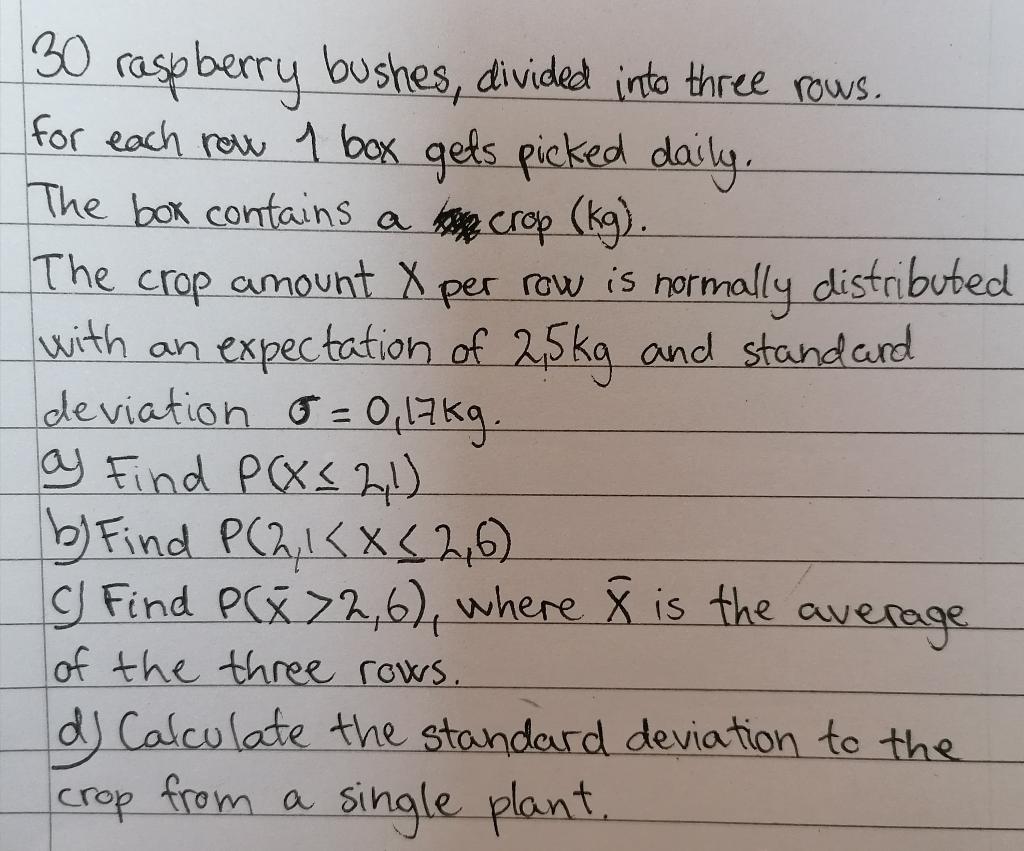 30 raspberry bushes, divided into three rows.
For each row 1 box gets picked daily.
The box contains a crop (kg).
The crop amount X per row is normally distributed
with an expectation of 2,5kg and standard
deviation σ = 0,17kg.
a) Find P(X ≤ 2,1)
b) Find P(2,1 < X ≤ 2,6)
c) Find P(x̄ > 2,6), where x̄ is the average
of the three rows.
d) Calculate the standard deviation to the
crop from a single plant.